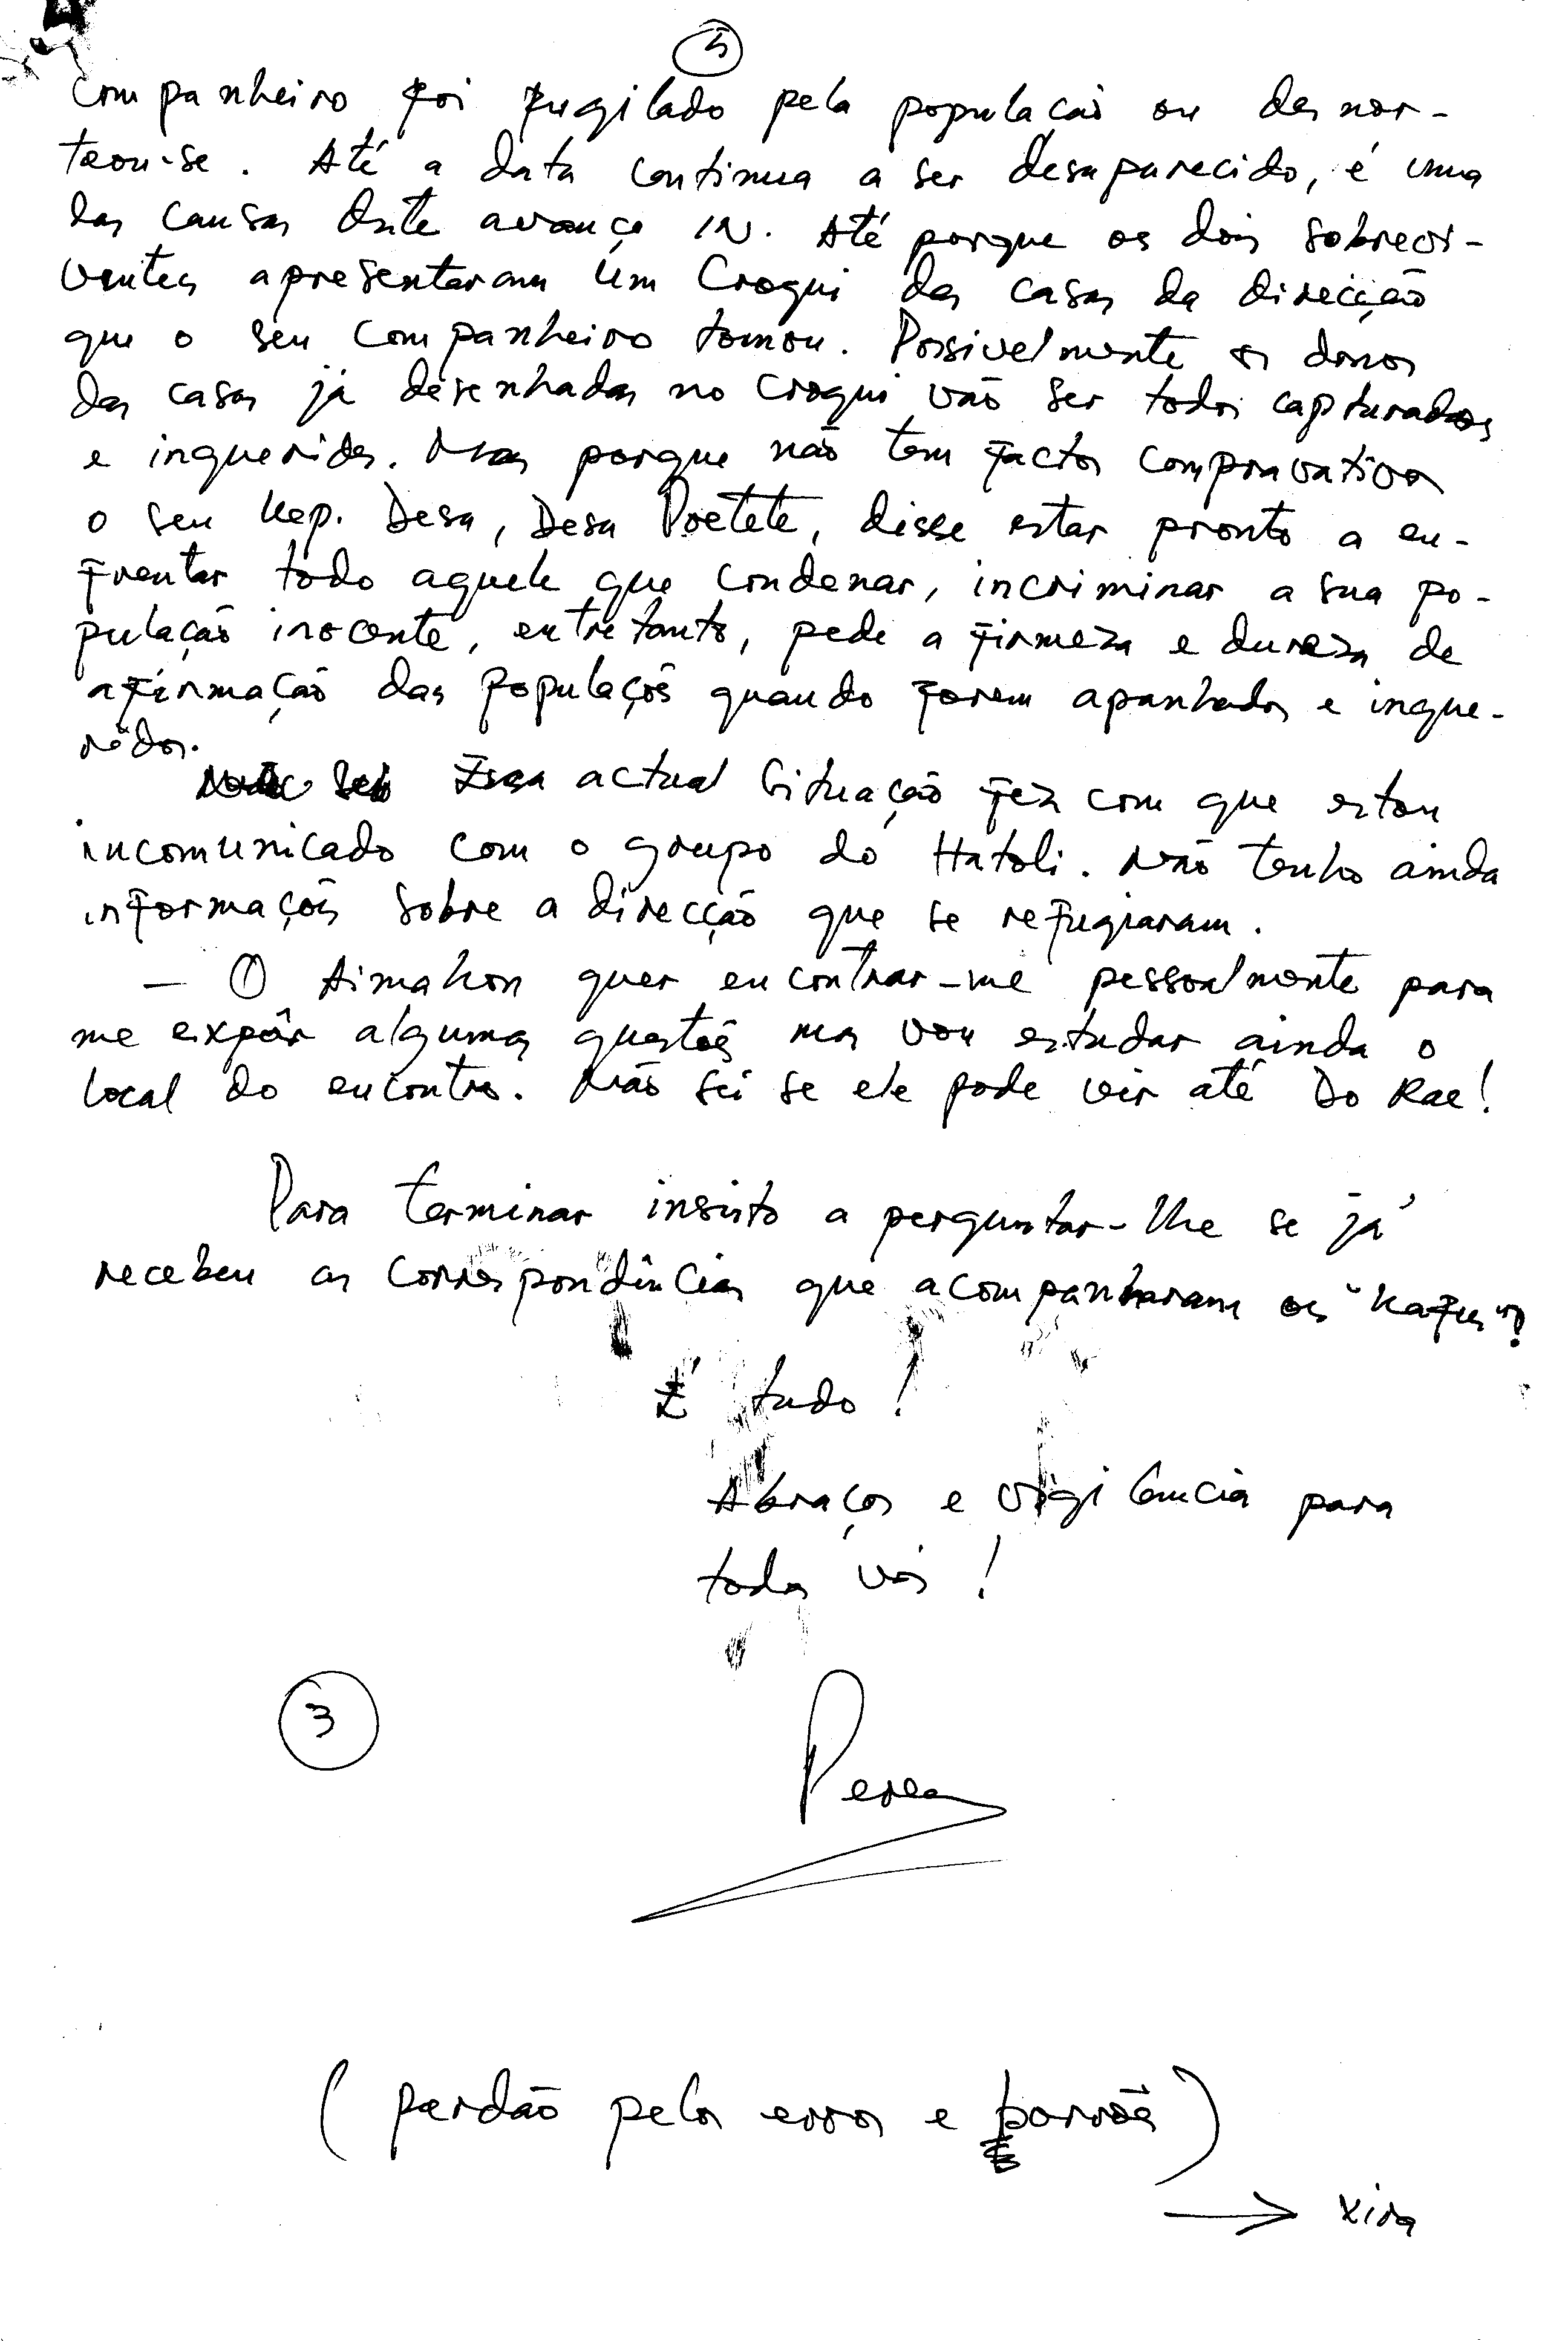 5
companheiro foi fugilado pela população ou desnor-
teou-se. Até a data continua a ser desaparecido, é uma
das causas deste avanço IN. Até porque os dois sobrevi-
ventes apresentaram um croqui das casas da direcção
que o seu companheiro tomou. Possivelmente os donos
das casas já desenhadas no croqui vão ser todos capturados
e inqueridos. Mas porque não tem factos compravativos
o seu Kep. Desa, Desa Poetete, disse estar pronto a en-
frentar todo aquele que condenar, incriminar a sua po-
pulação inocente, entretanto, pede a firmeza e dureza de
afirmação das populações quando forem apanhados e inque-
ridos.
Essa actual situação fez com que estou
incomunicado com o grupo do Hatoli. Não tenho ainda
informações sobre a direcção que se refugiaram.
— O Aimahon quer encontrar-me pessoalmente para
me expôr algumas questões mas vou estudar ainda o
local do encontro. Não sei se ele pode vir até Do Rae!
Para terminar insisto a perguntar-lhe se já
recebeu as correspondências que acompanharam os "Kafus"?
É tudo!
Abraços e vigilância para
todos vós!
3
Perea
(perdão pelos erros e borrões)
→ Xira